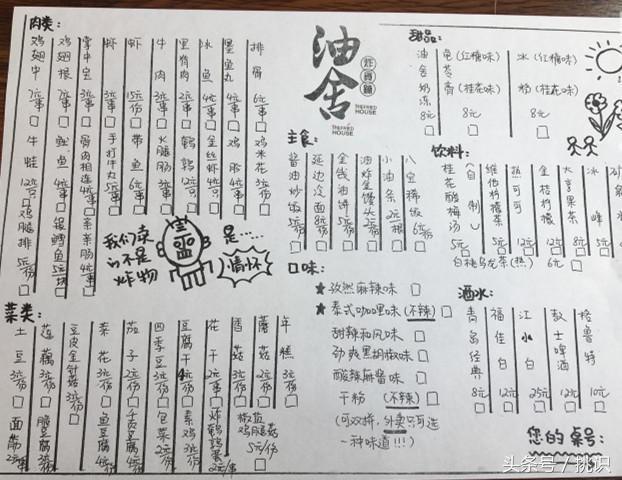 肉类:
鸡翅中 7元/串
鸡翅根
掌中宝 3元/串
虾 3元/串
虾 15元/份
牛肉 3元/串
里脊肉 2元/串
冰鱼 4元/串
墨鱼丸 4元/串
排骨 6元/串
牛蛙 12元/只
鱿鱼 4元/串
骨肉相连 4元/串
手打牛丸 5元/串
带鱼 6元/串
火腿肠 3元/串
鹌鹑 12元/只
金丝虾 4元/只
鸡胗
鸡米花
鸡腿排 5元/份
银鳕鱼 5元/块
亲亲肠 4元/串
油舍
炸货铺
THEFRIED HOUSE
THEFRIED HOUSE
我们卖
的不是
炸物
是…
情怀
主食:
酱油炒饭 8元/份
延边冷面 8元/份
金钱油饼 5元/份
油炸金馒头 2元/份
小油条 2元/根
八宝稀饭 6元/份
口味:
★ 孜然麻辣味
★ 泰式咖喱味(不辣)
甜辣和风味
劲爽黑胡椒味
酸辣麻酱味
干粉(不辣)
(可双拼,外卖只可选
一种味道!!!)
甜品:
油舍奶冻 8元
龟苓膏 (红糖味) (桂花味) 8元
冰粉 (红糖味) (桂花味) 8元
饮料:
桂花酸梅汤(自制) 5元
维他柠檬茶 5元
热可可 12元
金桔柠檬 12元
大亨果茶 8元
冰峰 5元
白桃乌龙茶(热) 6元
酒水:
青岛经典 8元
福佳白 12元
江小白 25元
教士啤酒 12元
格鲁特 10元
您的桌号:
菜类:
土豆 3元/份
莲藕 3元/份
豆皮金针菇 3元/份
菜花 3元/份
茄子 2元/份
四季豆 3元/份
豆腐干 4元/份
花干 2元/串
香菇 3元/份
蘑菇 2元/份
年糕 3元/份
面筋
脆豆腐 3元/份
鱼豆腐 4元/份
千页豆腐 4元/份
包菜 2元/份
素鸡 3元/份
炸鹌鹑蛋 2元/串
椒盐
鸡腿菇
5元/份
头条号/挑识